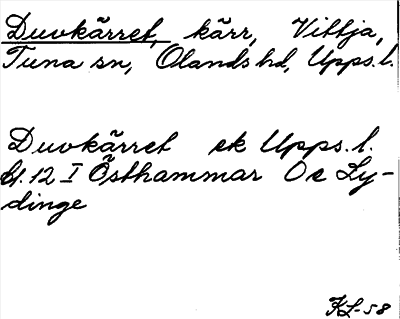 Duvkärret, kärr, Vittja,
Tuna sn, Olands hd, Upps.l.
Duvkärret ek Upps. l.
bl. 12 I Östhammar O e Ly-
dinge
KL-58